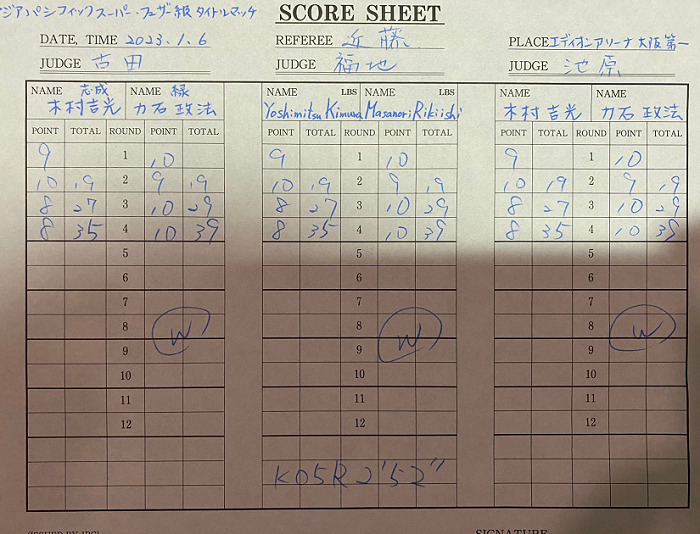 ジアパシフィックスーパー・フェザー級タイトルマッチ SCORE SHEET
DATE, TIME 2023.1.6 REFEREE 近藤 PLACE エディオンアリーナ大阪第一
JUDGE 吉田 JUDGE 福地 JUDGE 池原
NAME 志成 NAME 緑 NAME LBS NAME LBS NAME NAME
木村吉光 力石政法 Yoshimitsu Kimura Masanori Rikiishi 木村吉光 力石政法
POINT TOTAL ROUND POINT TOTAL POINT TOTAL ROUND POINT TOTAL POINT TOTAL ROUND POINT TOTAL
9 1 10 9 1 10 9 1 10
10 19 2 9 19 10 19 2 9 19 10 19 2 9 19
8 27 3 10 29 8 27 3 10 29 8 27 3 10 29
8 35 4 10 39 8 35 4 10 39 8 35 4 10 39
5 5 5
6 6 6
7 7 7
8 W 8 W 8 W
9 9 9
10 10 10
11 11 11
12 12 12
KO5R2'52"
SIGNATURE